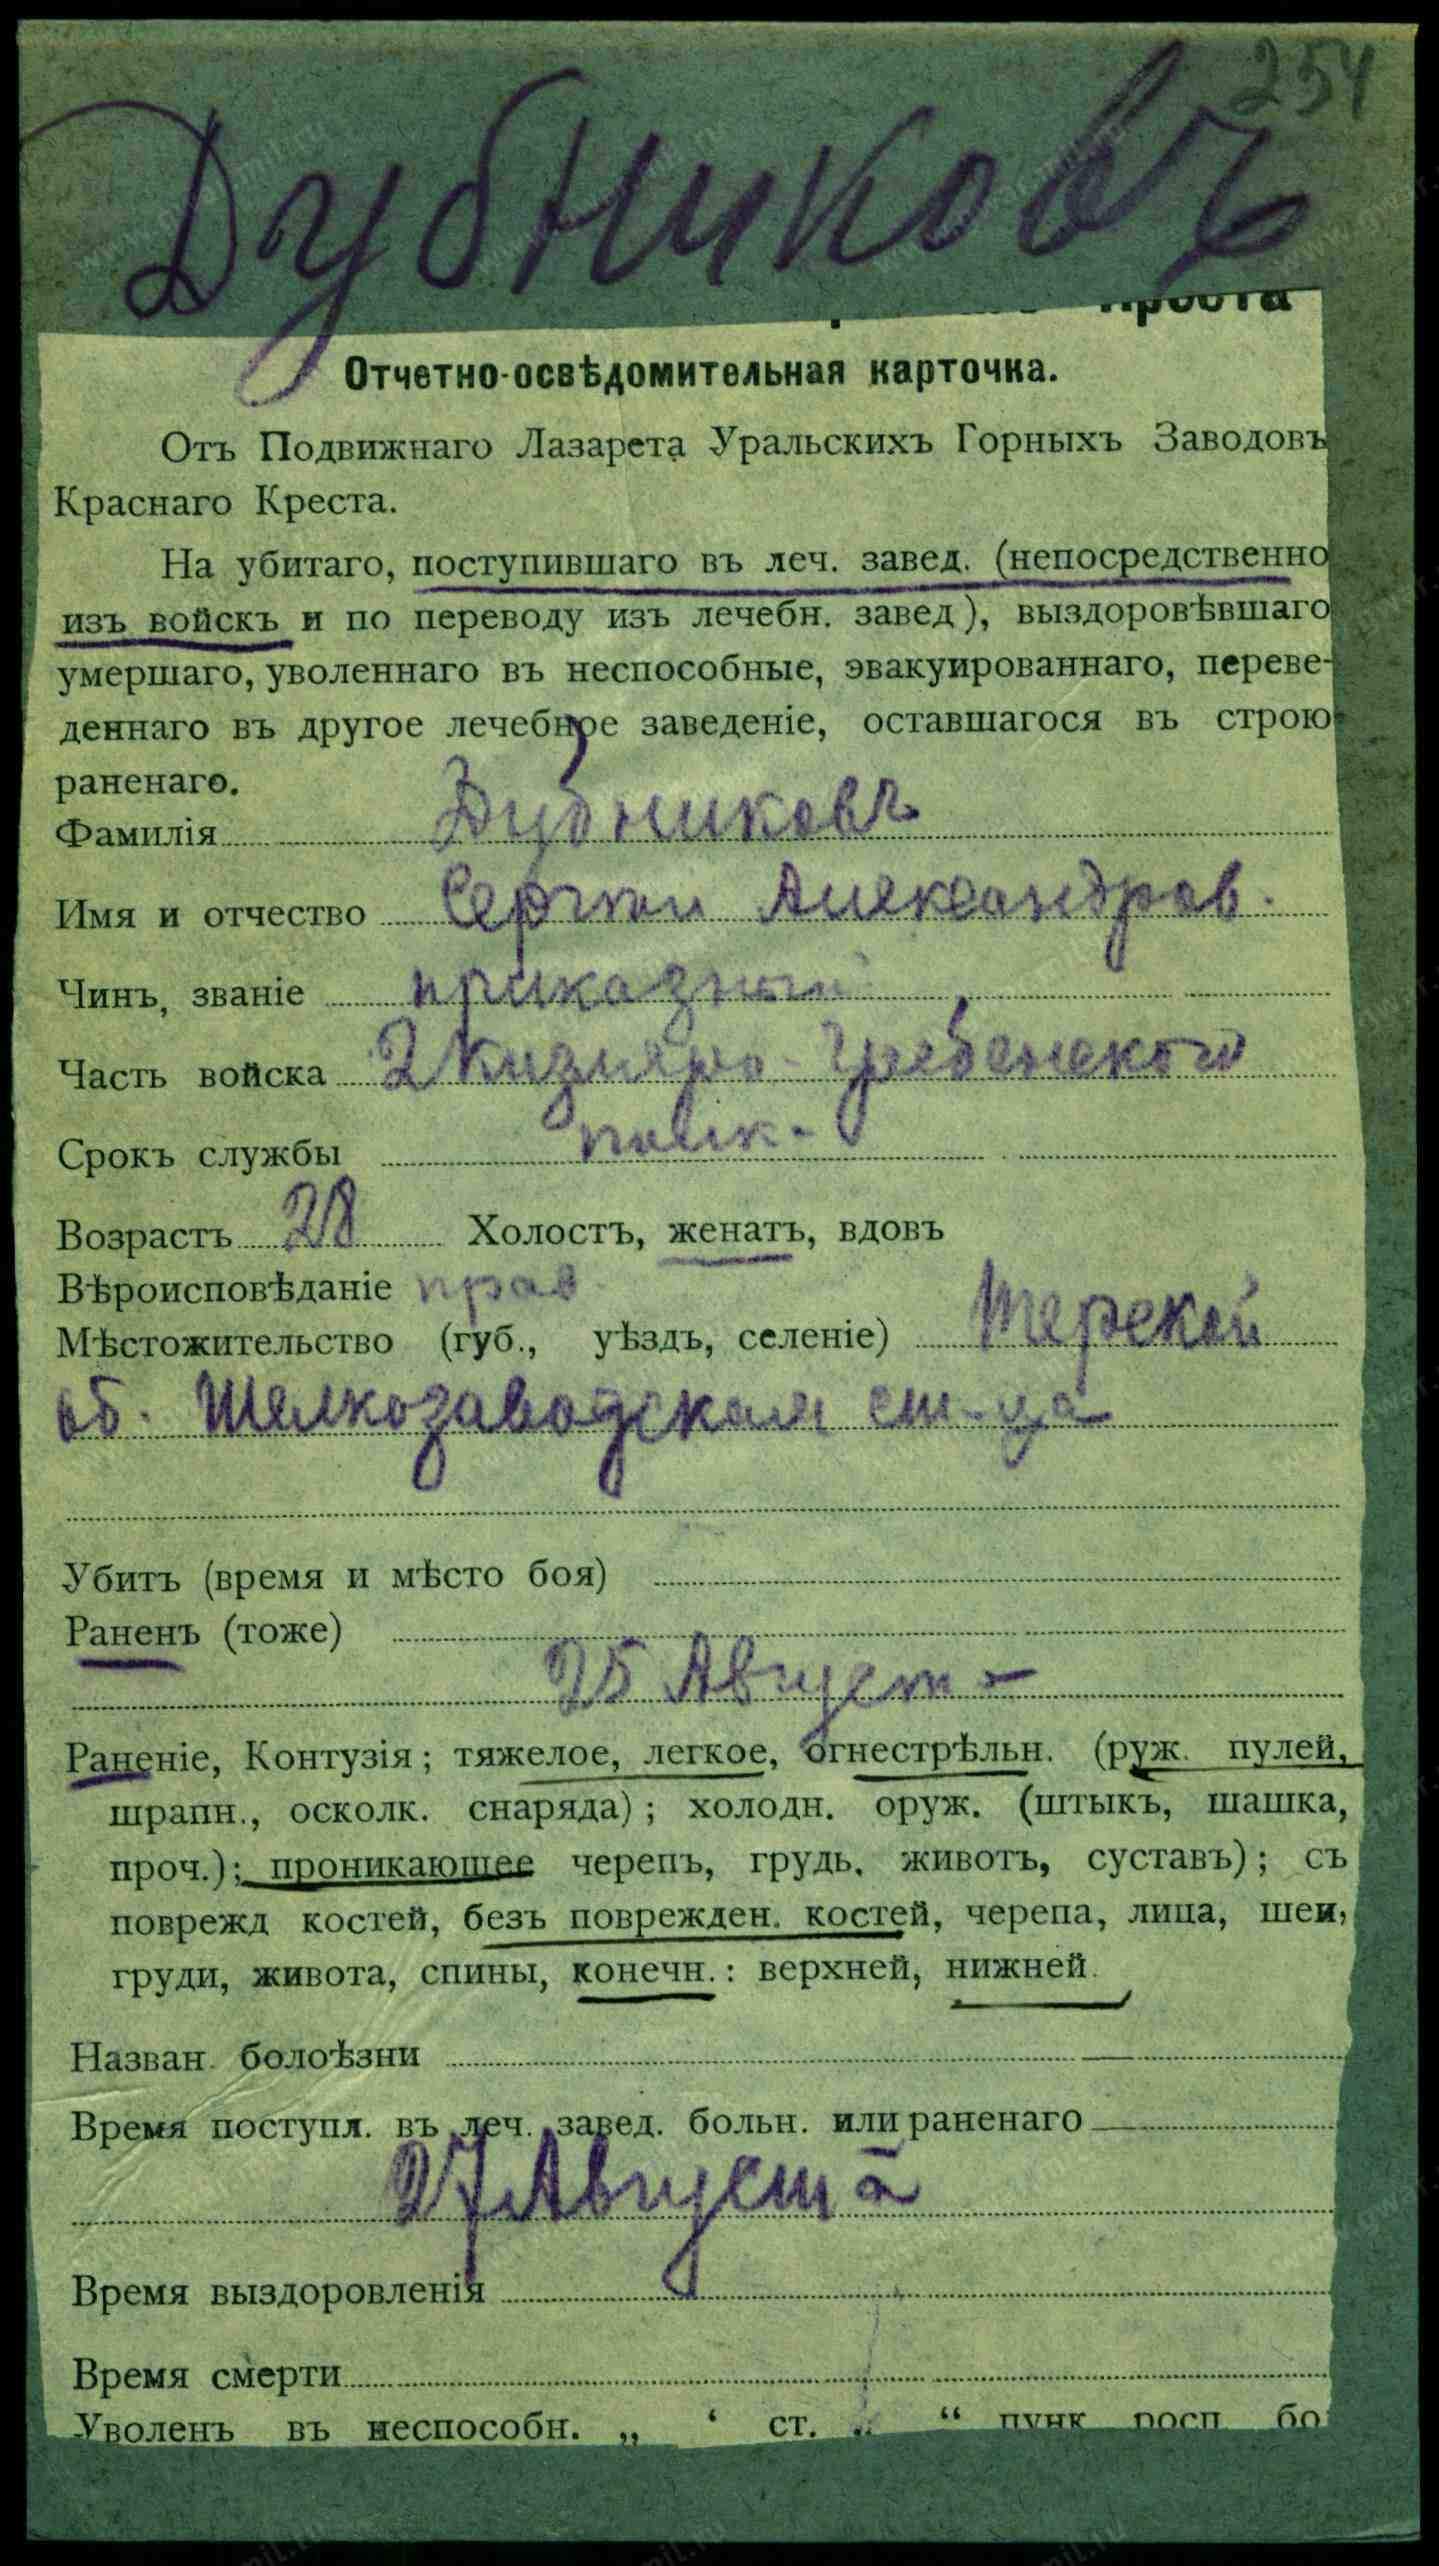 254
Дубниковъ
Креста
Отчетно-освѣдомительная карточка.
Отъ Подвижнаго Лазарета Уральскихъ Горныхъ Заводовъ
Краснаго Креста.
На убитаго, поступившаго въ леч. завед. (непосредственно
изъ войскъ и по переводу изъ лечебн. завед), выздоровѣвшаго
умершаго, уволеннаго въ неспособные, эвакуированнаго, переве-
деннаго въ другое лечебное заведеніе, оставшагося въ строю
раненаго.
Фамилія Дубниковъ
Имя и отчество Сергѣй Александров.
Чинъ, званіе приказный
Часть войска 2 Кизляро-Гребенского
Срокъ службы полк.
Возрастъ 28 Холостъ, женатъ, вдовъ
Вѣроисповѣданіе прав.
Мѣстожительство (губ., уѣздъ, селеніе) Терской
об. Шелкозаводская ст-ца
Убитъ (время и мѣсто боя)
Раненъ (тоже)
25 Август
Раненіе, Контузія; тяжелое, легкое, огнестрѣльн. (руж. пулей,
шрапн., осколк. снаряда); холодн. оруж. (штыкъ, шашка,
проч.); проникающее черепъ, грудь, животъ, суставъ); съ
поврежд костей, безъ поврежден. костей, черепа, лица, шеи,
груди, живота, спины, конечн.: верхней, нижней.
Назван. болоѣзни
Время поступл. въ леч. завед. больн. или раненаго
27 Августа
Время выздоровленія
Время смерти
Уволенъ въ неспособн. „ ‘ ст. „ “ пунк росп. бо